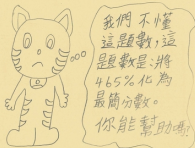 我們不懂
這題數，這
題數是：將
465%化為
最簡分數。
你能幫助嗎？